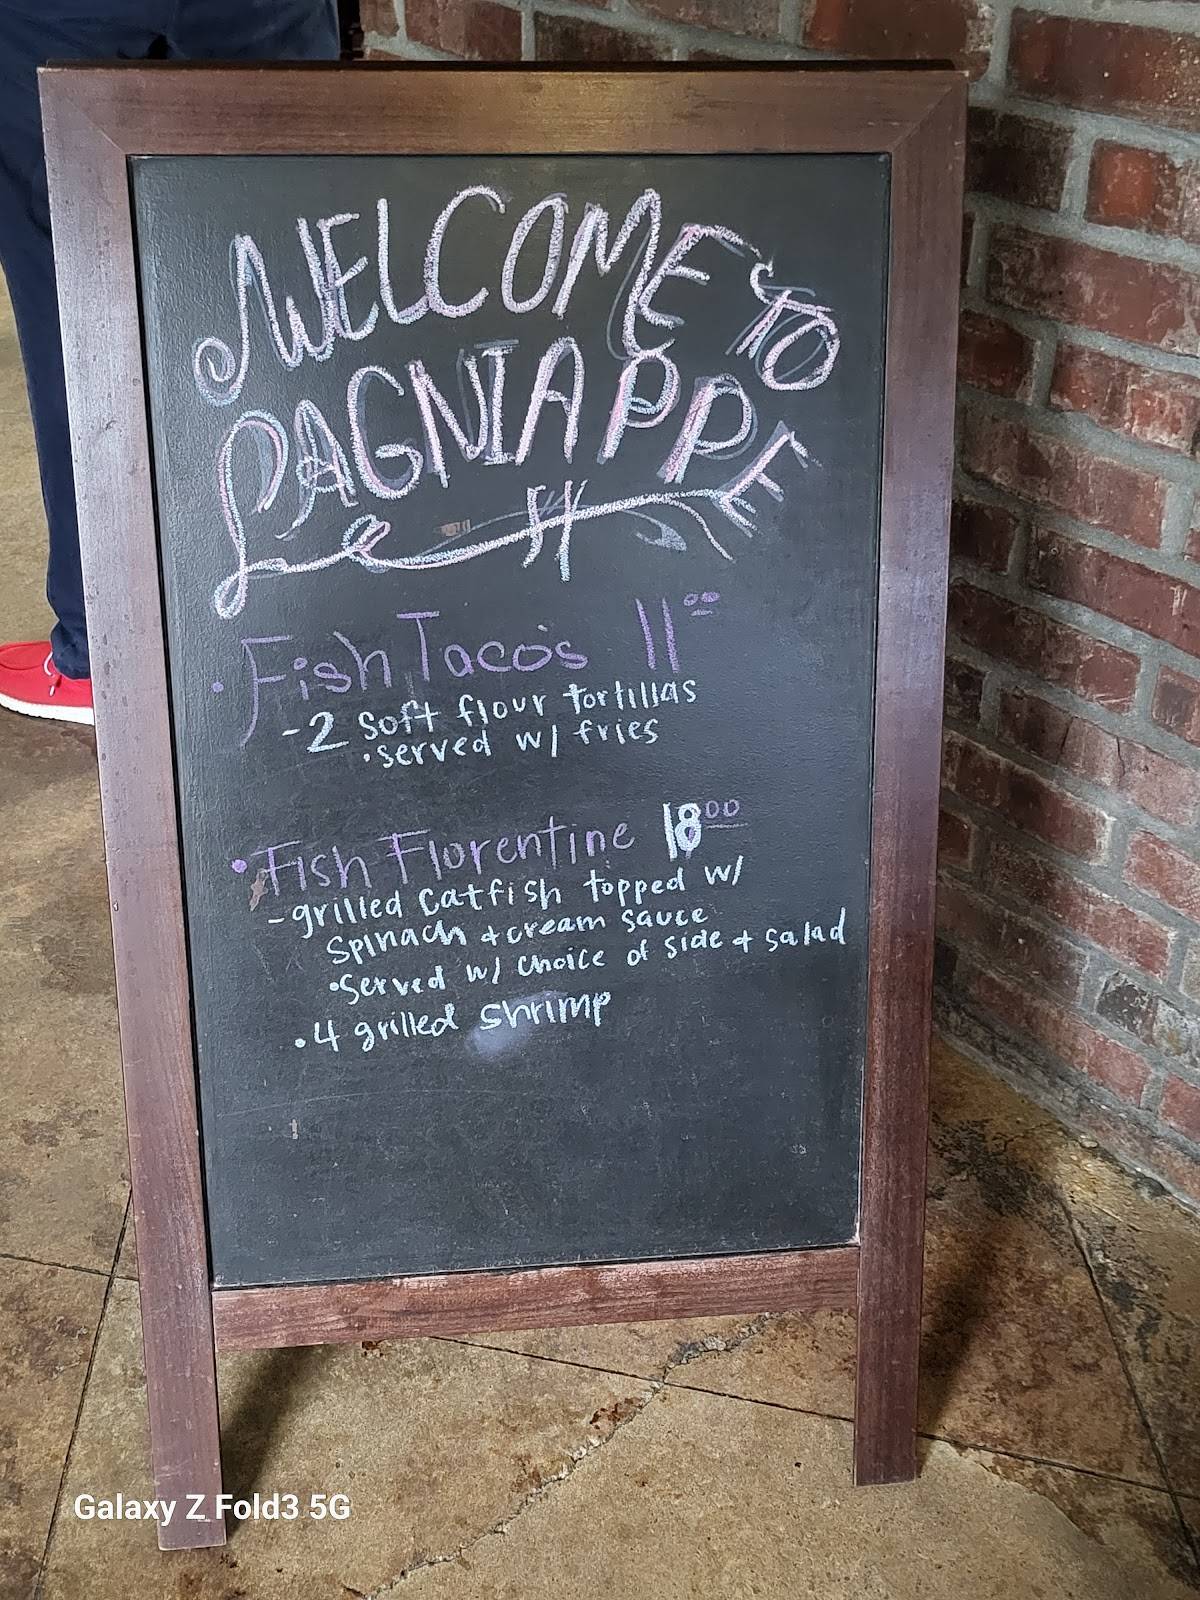 WELCOME TO
LAGNIAPPE
• Fish Taco's 11.00
- 2 soft flour tortillas
• served w/ fries
• Fish Florentine 18.00
- grilled catfish topped w/
spinach + cream sauce
• Served w/ choice of side + salad
• 4 grilled shrimp
Galaxy Z Fold3 5G